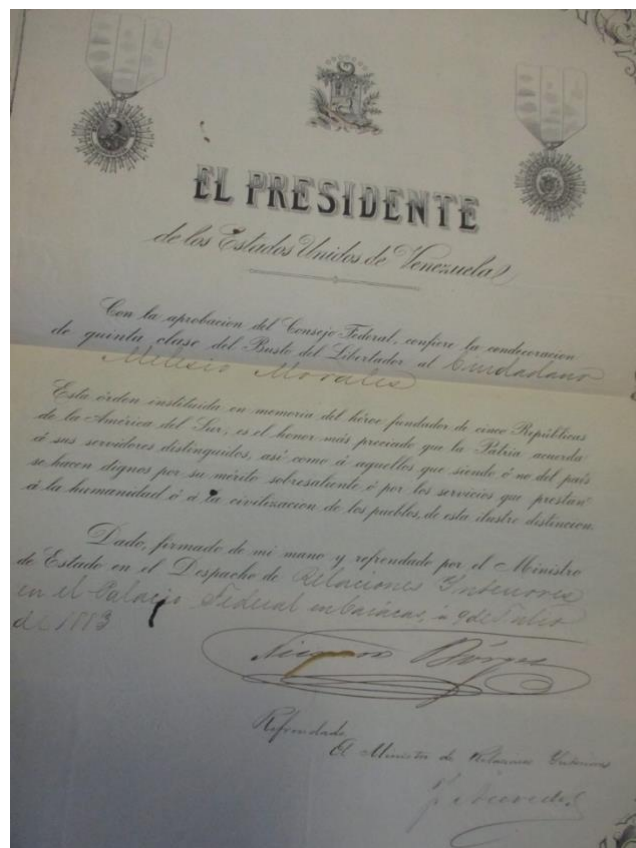 EL PRESIDENTE
de los Estados Unidos de Venezuela
Con la aprobacion del Consejo Federal, confiere la condecoracion
de quinta clase del Busto del Libertador al Ciudadano
Melesio Morales
Esta órden instituida en memoria del héroe fundador de cinco Repúblicas
de la América del Sur, es el honor más preciado que la Patria acuerda
á sus servidores distinguidos, así como á aquellos que siendo ó no del país
se hacen dignos por su mérito sobresaliente ó por los servicios que prestan
á la humanidad ó á la civilizacion de los pueblos, de esta ilustre distincion.
Dado, firmado de mi mano y refrendado por el Ministro
de Estado en el Despacho de Relaciones Interiores
en el Palacio Federal en Carácas, á 9 de
de 1883
Borges
Refrendado
El Ministro de Relaciones Interiores